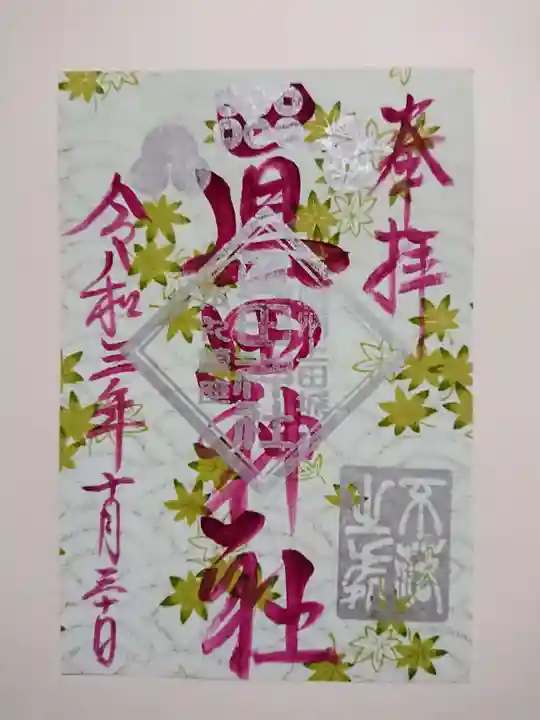 奉拝
眞田神社
令和三年十月三十日
不落
之城